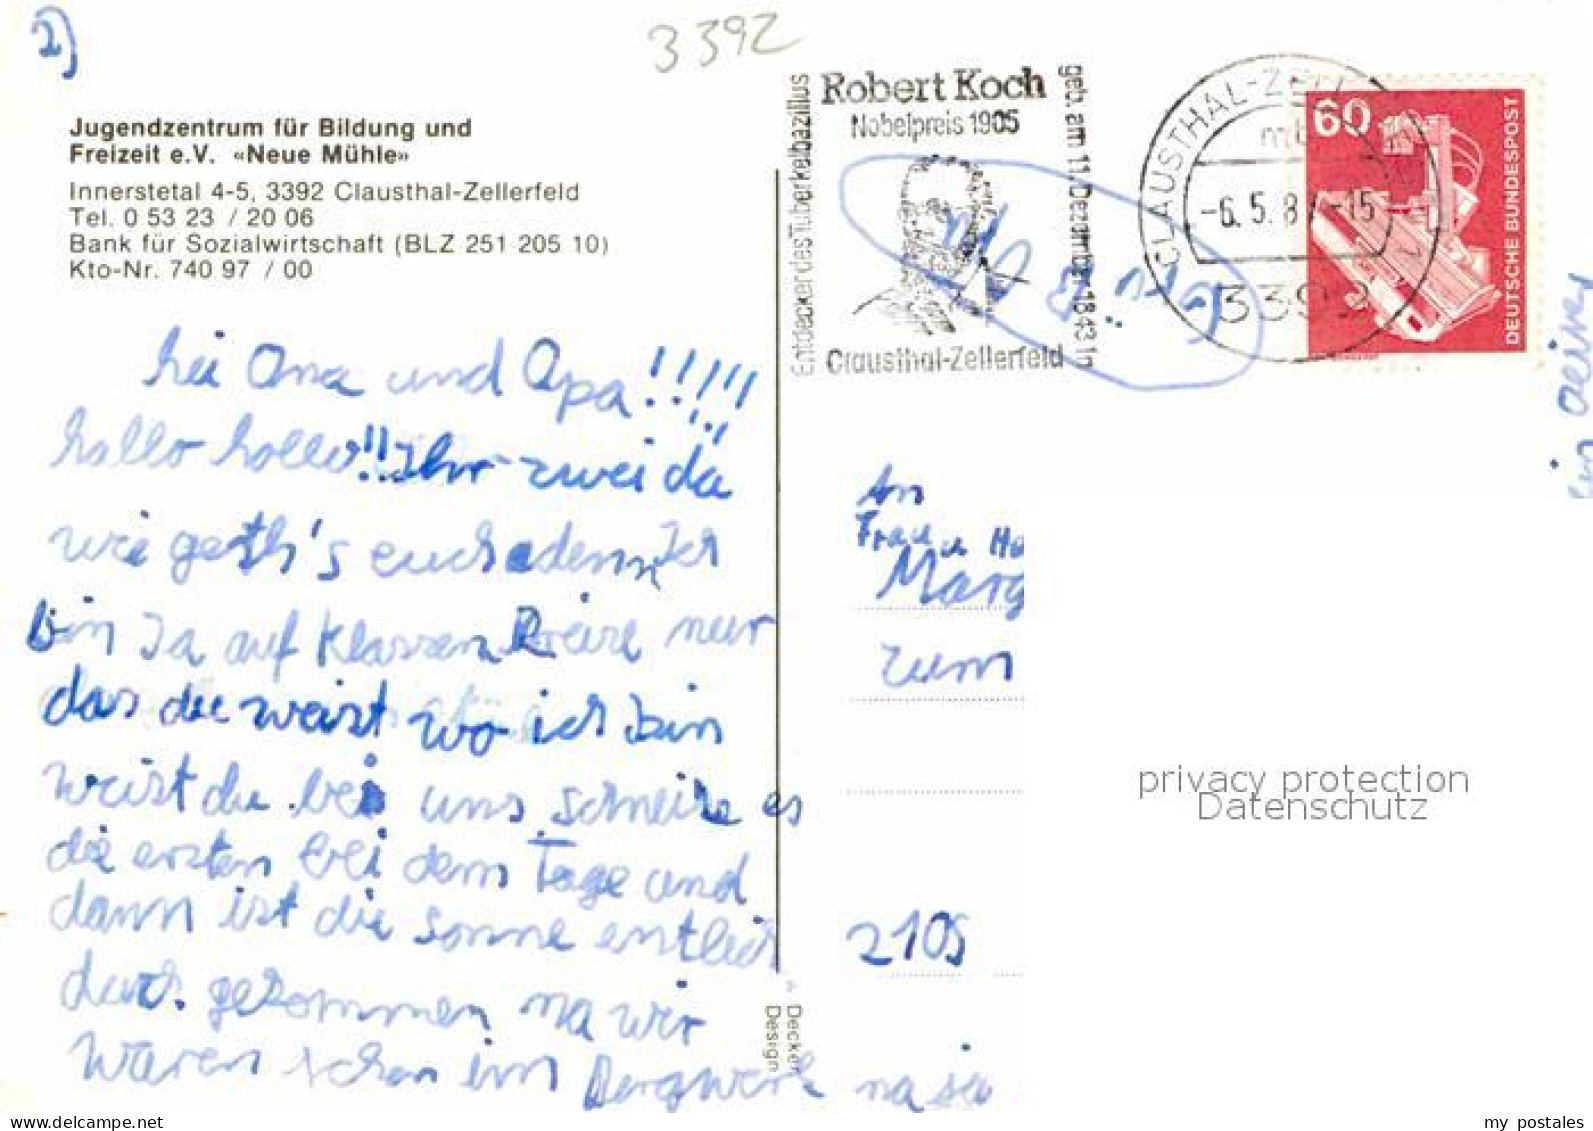 2)
3392
Jugendzentrum für Bildung und
Freizeit e.V. «Neue Mühle»
Innerstetal 4-5, 3392 Clausthal-Zellerfeld
Tel. 0 53 23 / 20 06
Bank für Sozialwirtschaft (BLZ 251 205 10)
Kto-Nr. 740 97 / 00
hei Oma und Opa!!!!!
hallo hallo!! Ihr zwei da
wie geth's euch denn Ich
bin Ja auf Klassen Reise nur
das du weist wo ich bin
weist du bei uns schneite es
die ersten bei dem Tage und
dann ist die sonne entlich
durch gekommen na wir
waren schon im Bergwerk na ja
Decker
Design
Entdecker des Tuberkelbazillus
Robert Koch
Nobelpreis 1905
geb. am 11. Dezember 1843 in
Clausthal-Zellerfeld
CLAUSTHAL-ZELLERFELD 1
-6.5.8 -15
3392
60
DEUTSCHE BUNDESPOST
An
Frau u Ho
Marg
zum
2105
privacy protection
Datenschutz
my postales